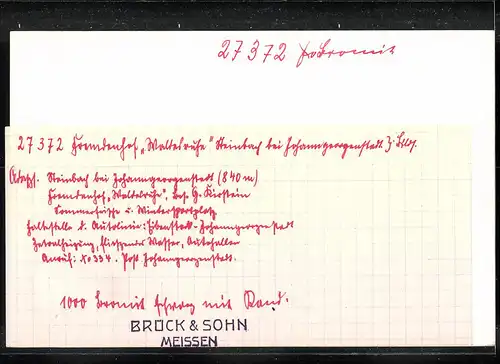 27372 Bromit
27372 Fremdenhof „Waldesruhe" Steinbach bei Johanngeorgenstadt.
Steinbach bei Johanngeorgenstadt (840 m)
Fremdenhof „Waldesruhe", Bes. G. Kirstein
Sommerfrische u. Wintersportplatz
Haltestelle d. Autolinie: Eibenstock-Johanngeorgenstadt
fließendes Wasser, Autohallen
Anruf: No 334. Post Johanngeorgenstadt.
1000 Bromit schwarz mit Rand.
BRÜCK & SOHN
MEISSEN